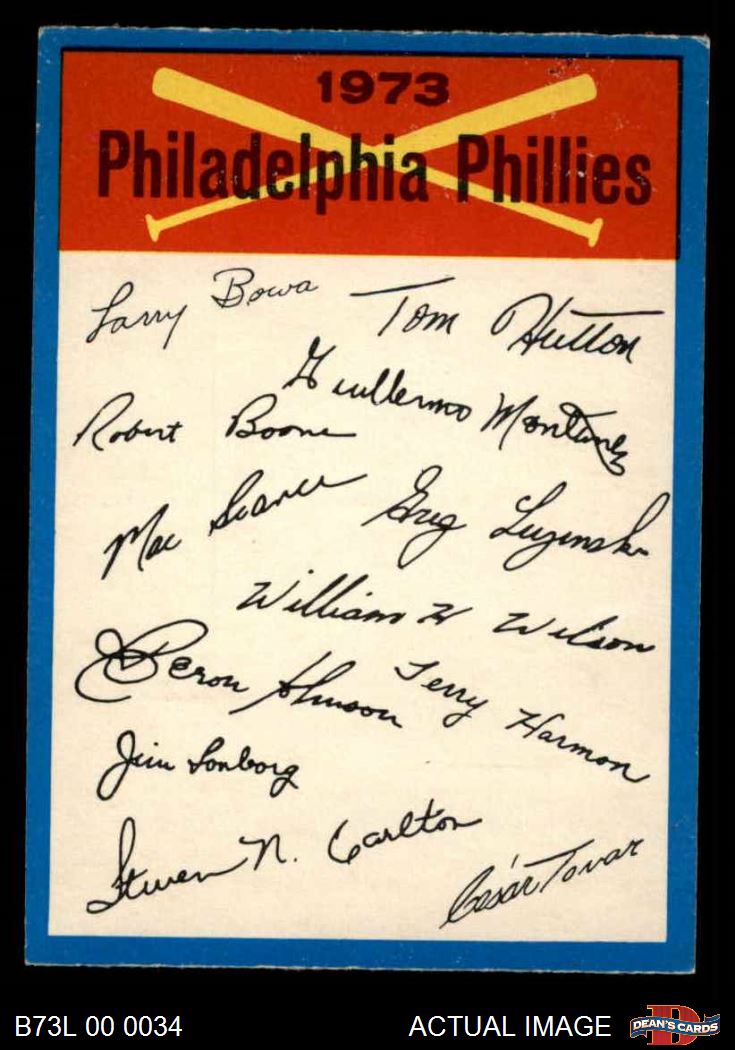 1973
Philadelphia Phillies
Larry Bowa
Tom Hutton
Guillermo Montanez
Robert Boone
Mac Scarce
Greg Luzinski
William H Wilson
Deron Johnson
Terry Harmon
Jim Lonborg
Steven N. Carlton
César Tovar
B73L 00 0034
ACTUAL IMAGE
D
DEAN'S CARDS